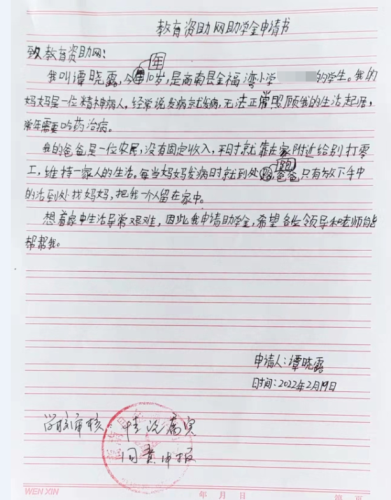 教育资助网助学金申请书
致教育资助网:
年
我叫谭晓露,今年10岁,是商南县金福湾小学 的学生。我们
妈妈是一位精神病人,经常说发病就发病,无法正常照顾我的生活起居,
常年需要吃药治病。
我的爸爸是一位农民,没有固定收入,平时就靠在家附近给别打零
工,维持一家人的生活,每当妈妈发病时就到处跑,爸爸只有放下手中
的活到处找妈妈,把我一个人留在家中。
想着家中生活异常艰难,因此我申请助学金,希望各位领导和老师能
帮帮我。
申请人:谭晓露
日期:2022年2月19日
学校审核 情况属实
同意申报
WEN XIN 年 月 日 第 页